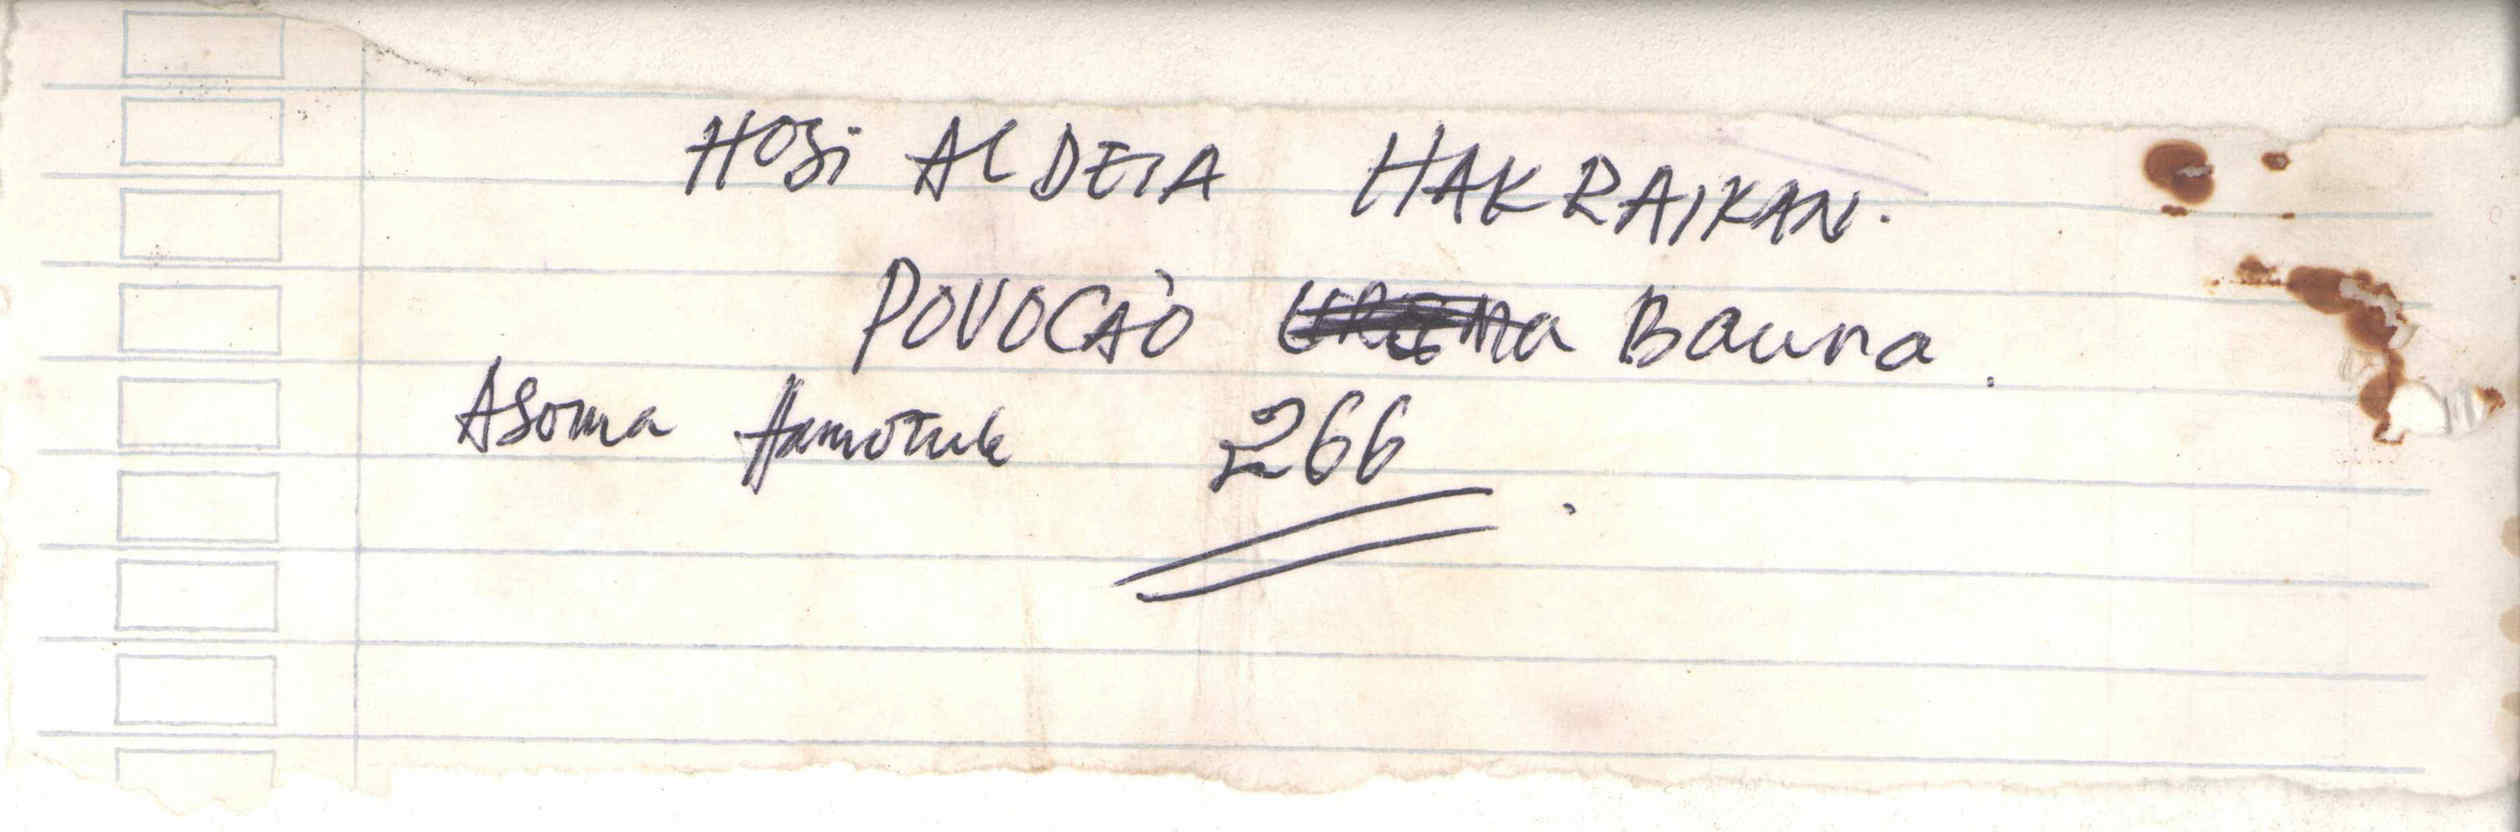 HOSi ALDEiA HAKRAIKAN.
POVOCAÒ Bauna.
ASoma Hamotuk 266